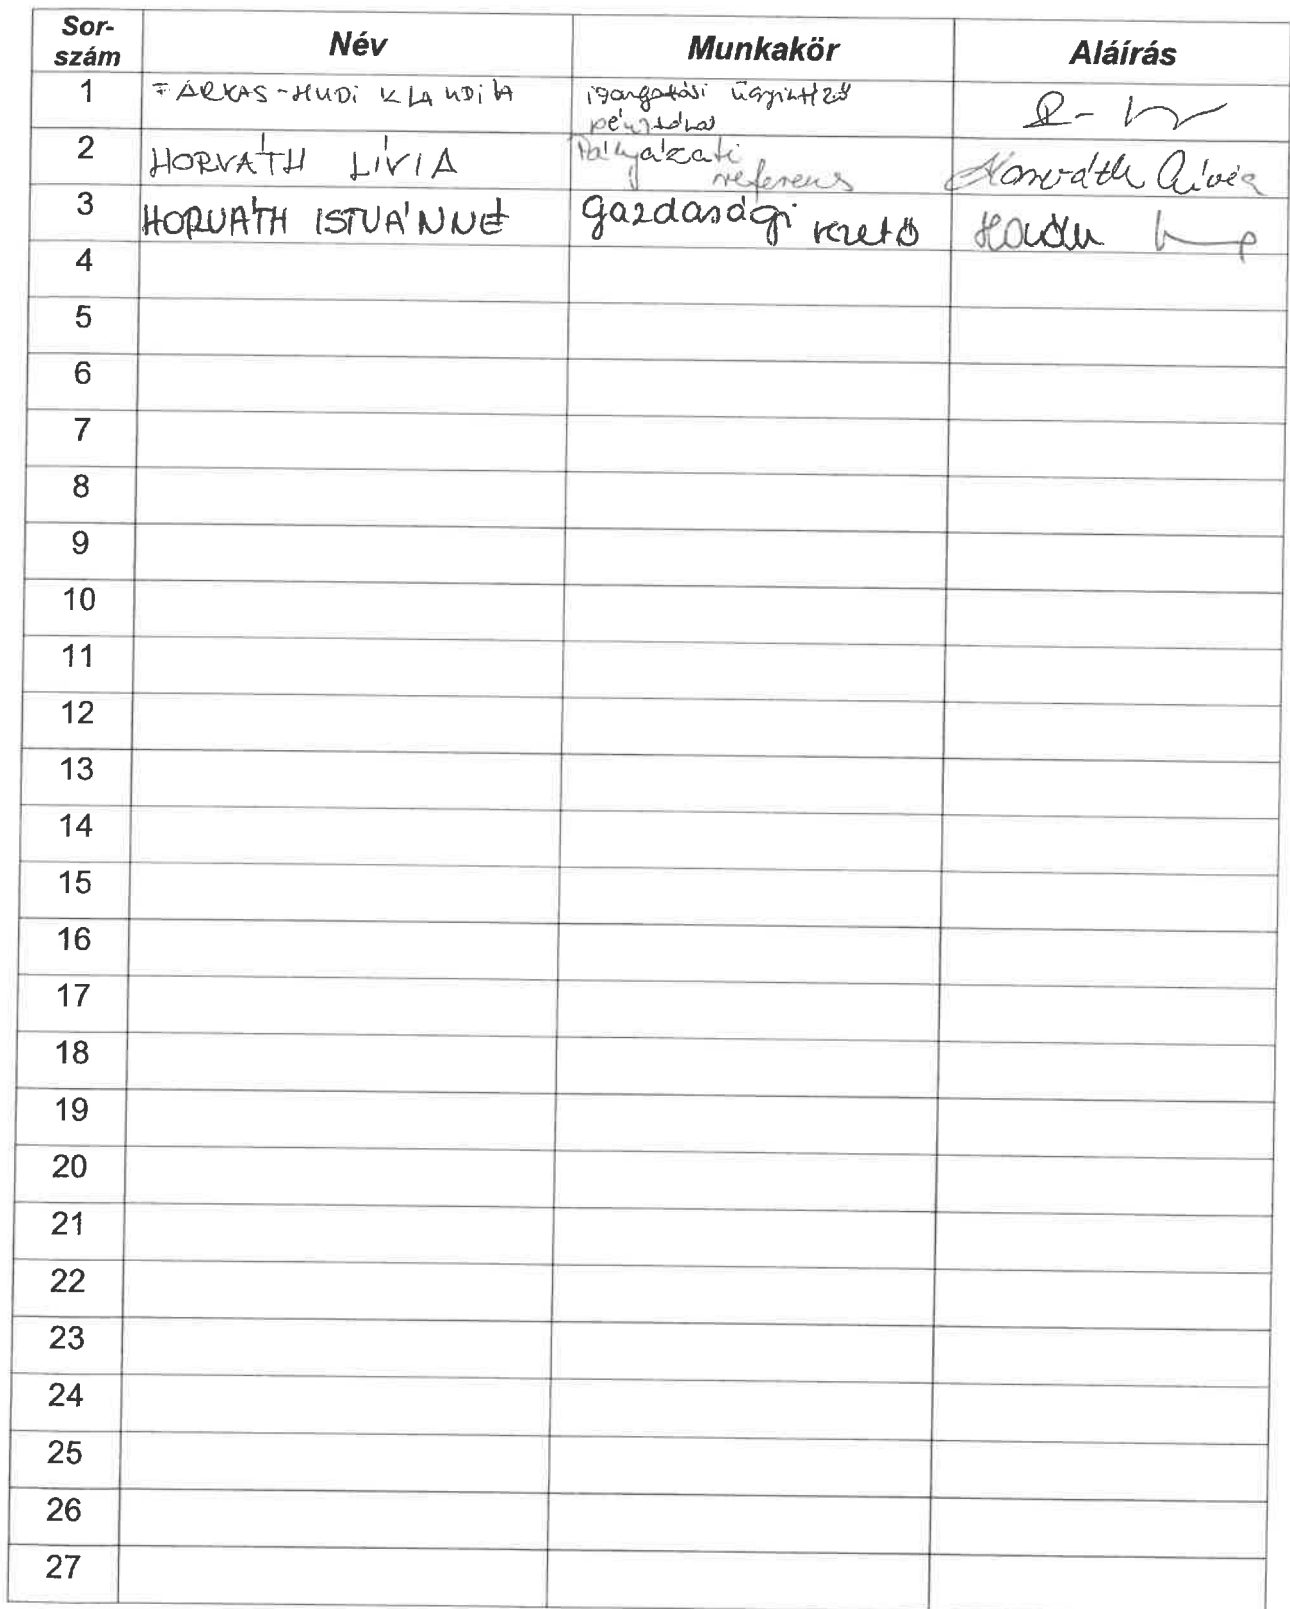 Sor-
szám Név Munkakör Aláírás
1 FARKAS-HUDI KLAUDIA igazgatási ügyintéző
pénztáros
2 HORVÁTH LÍVIA Pályázati
referens Horváth Lívia
3 HORVÁTH ISTVÁNNÉ gazdasági vezető
4
5
6
7
8
9
10
11
12
13
14
15
16
17
18
19
20
21
22
23
24
25
26
27